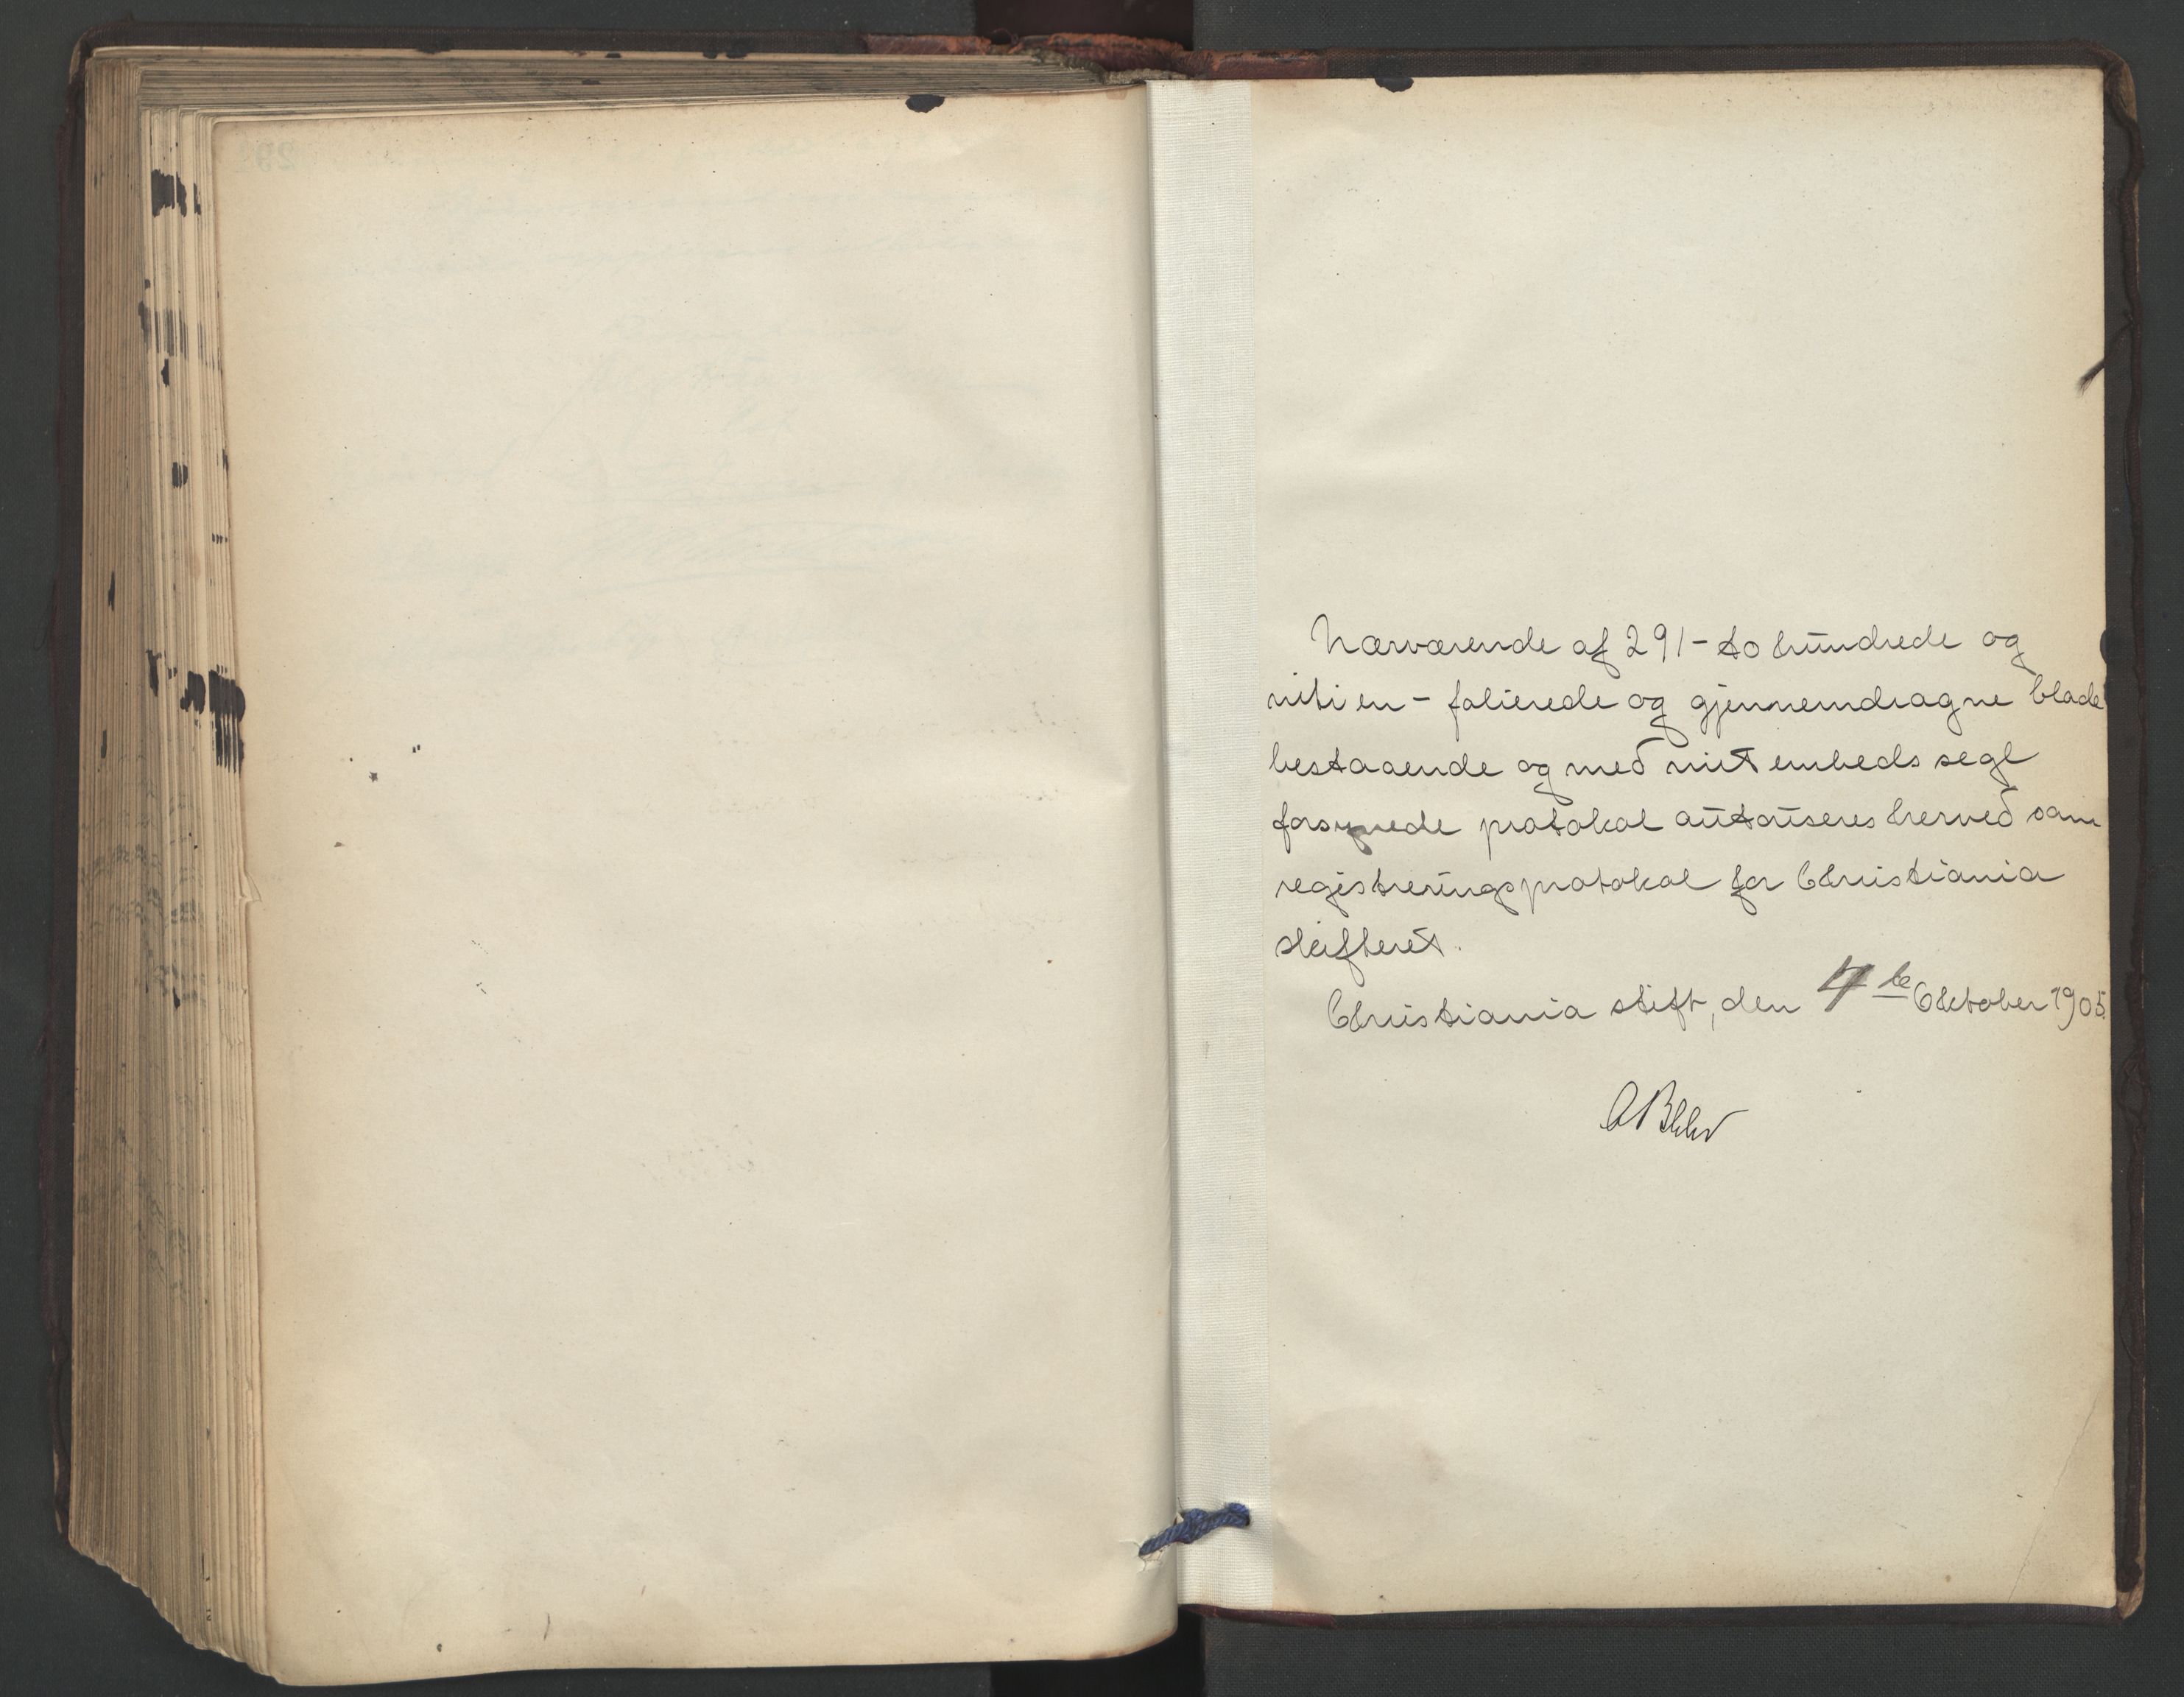 Nærværende af 291 - to hundrede og
niti en - folierede og gjennemdragne blade
bestaaende og med mit embeds segl
forsynede protokol autoriseres herved som
registreringsprotokol for Christiania
skifteret.
Christiania stift, den 4de Oktober 1905.